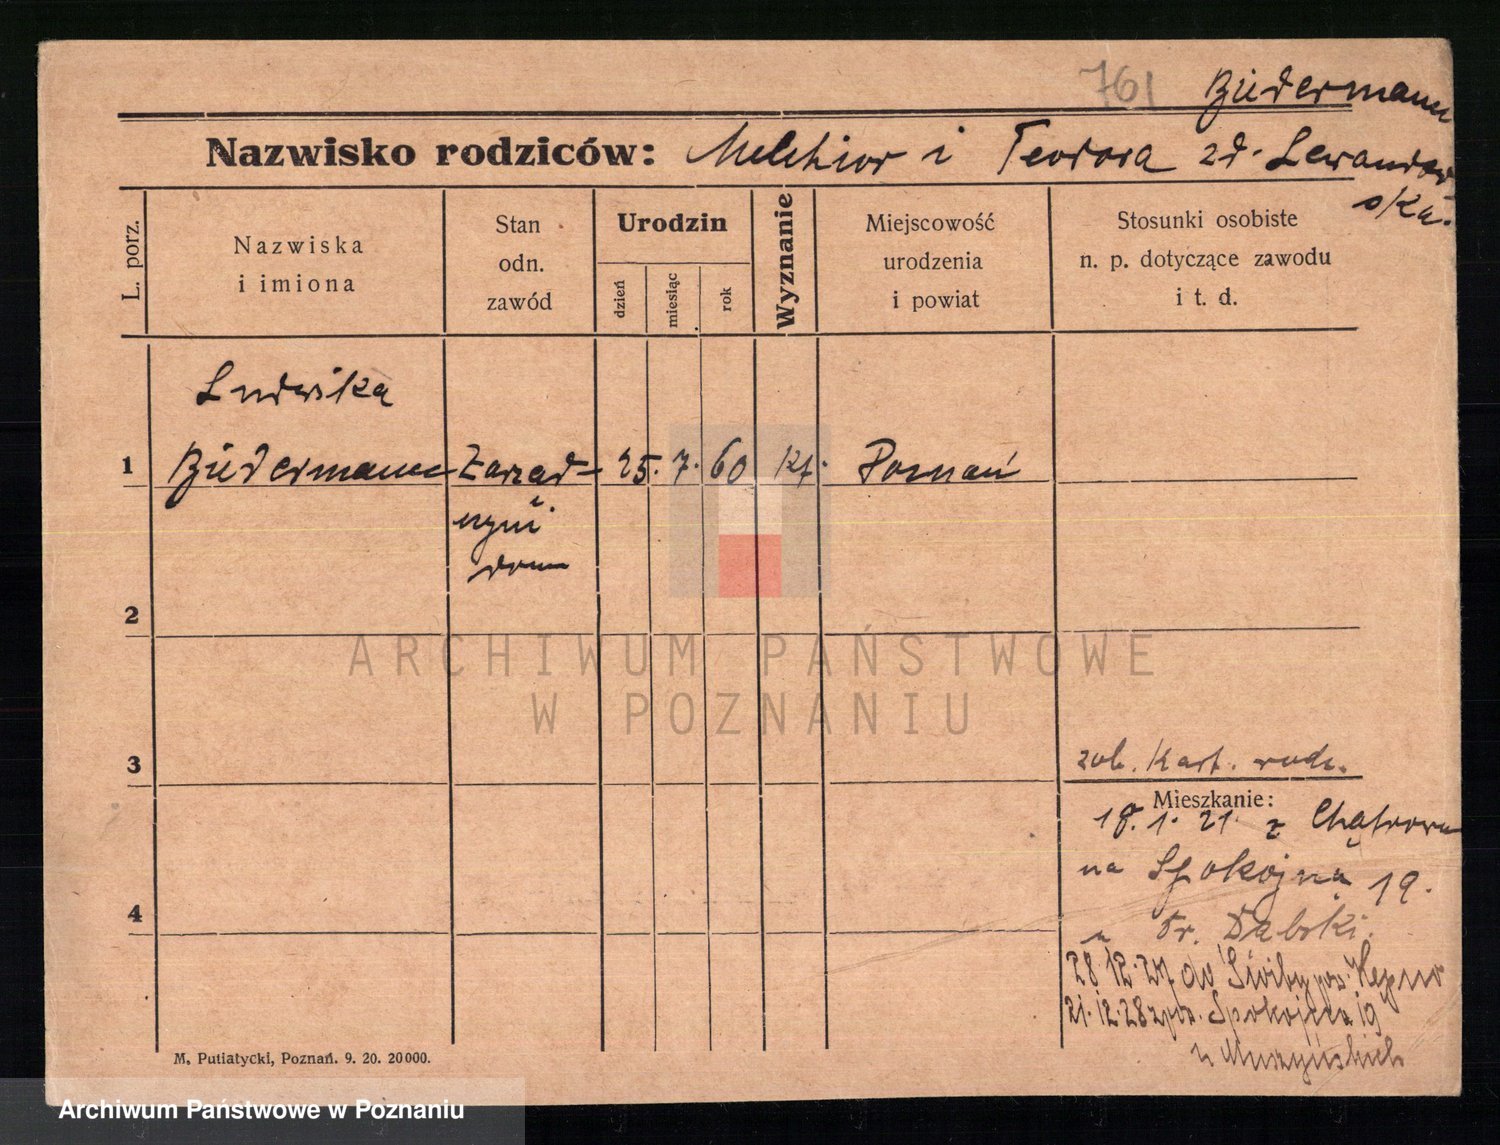 761 Biedermann
Nazwisko rodziców: Melchior i Teodora zd. Lewandow
ska.
L. porz.
Nazwiska
i imiona
Stan
odn.
zawód
Urodzin
dzień
miesiąc
rok
Wyznanie
Miejscowość
urodzenia
i powiat
Stosunki osobiste
n. p. dotyczące zawodu
i t. d.
Ludwika
1 Biedermann Zarząd- 25. 7. 60 kt. Poznań
czyni
domu
2
3 zob. Kart. rodz.
Mieszkanie:
18. 1. 21. z
na Spokojną 19.
u Fr. Dabski.
4
28.12.27 do
21.12.28 Spokojna 19
u Muszyńskich
M. Putiatycki, Poznań. 9. 20. 20000.
ARCHIWUM PAŃSTWOWE
W POZNANIU
Archiwum Państwowe w Poznaniu